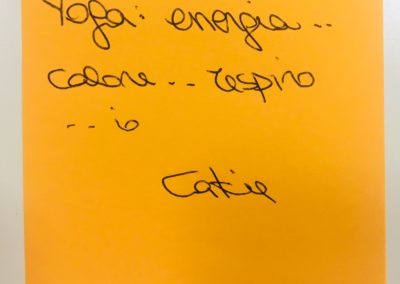 Yoga: energia..
calore.. respiro
.. io
Catie